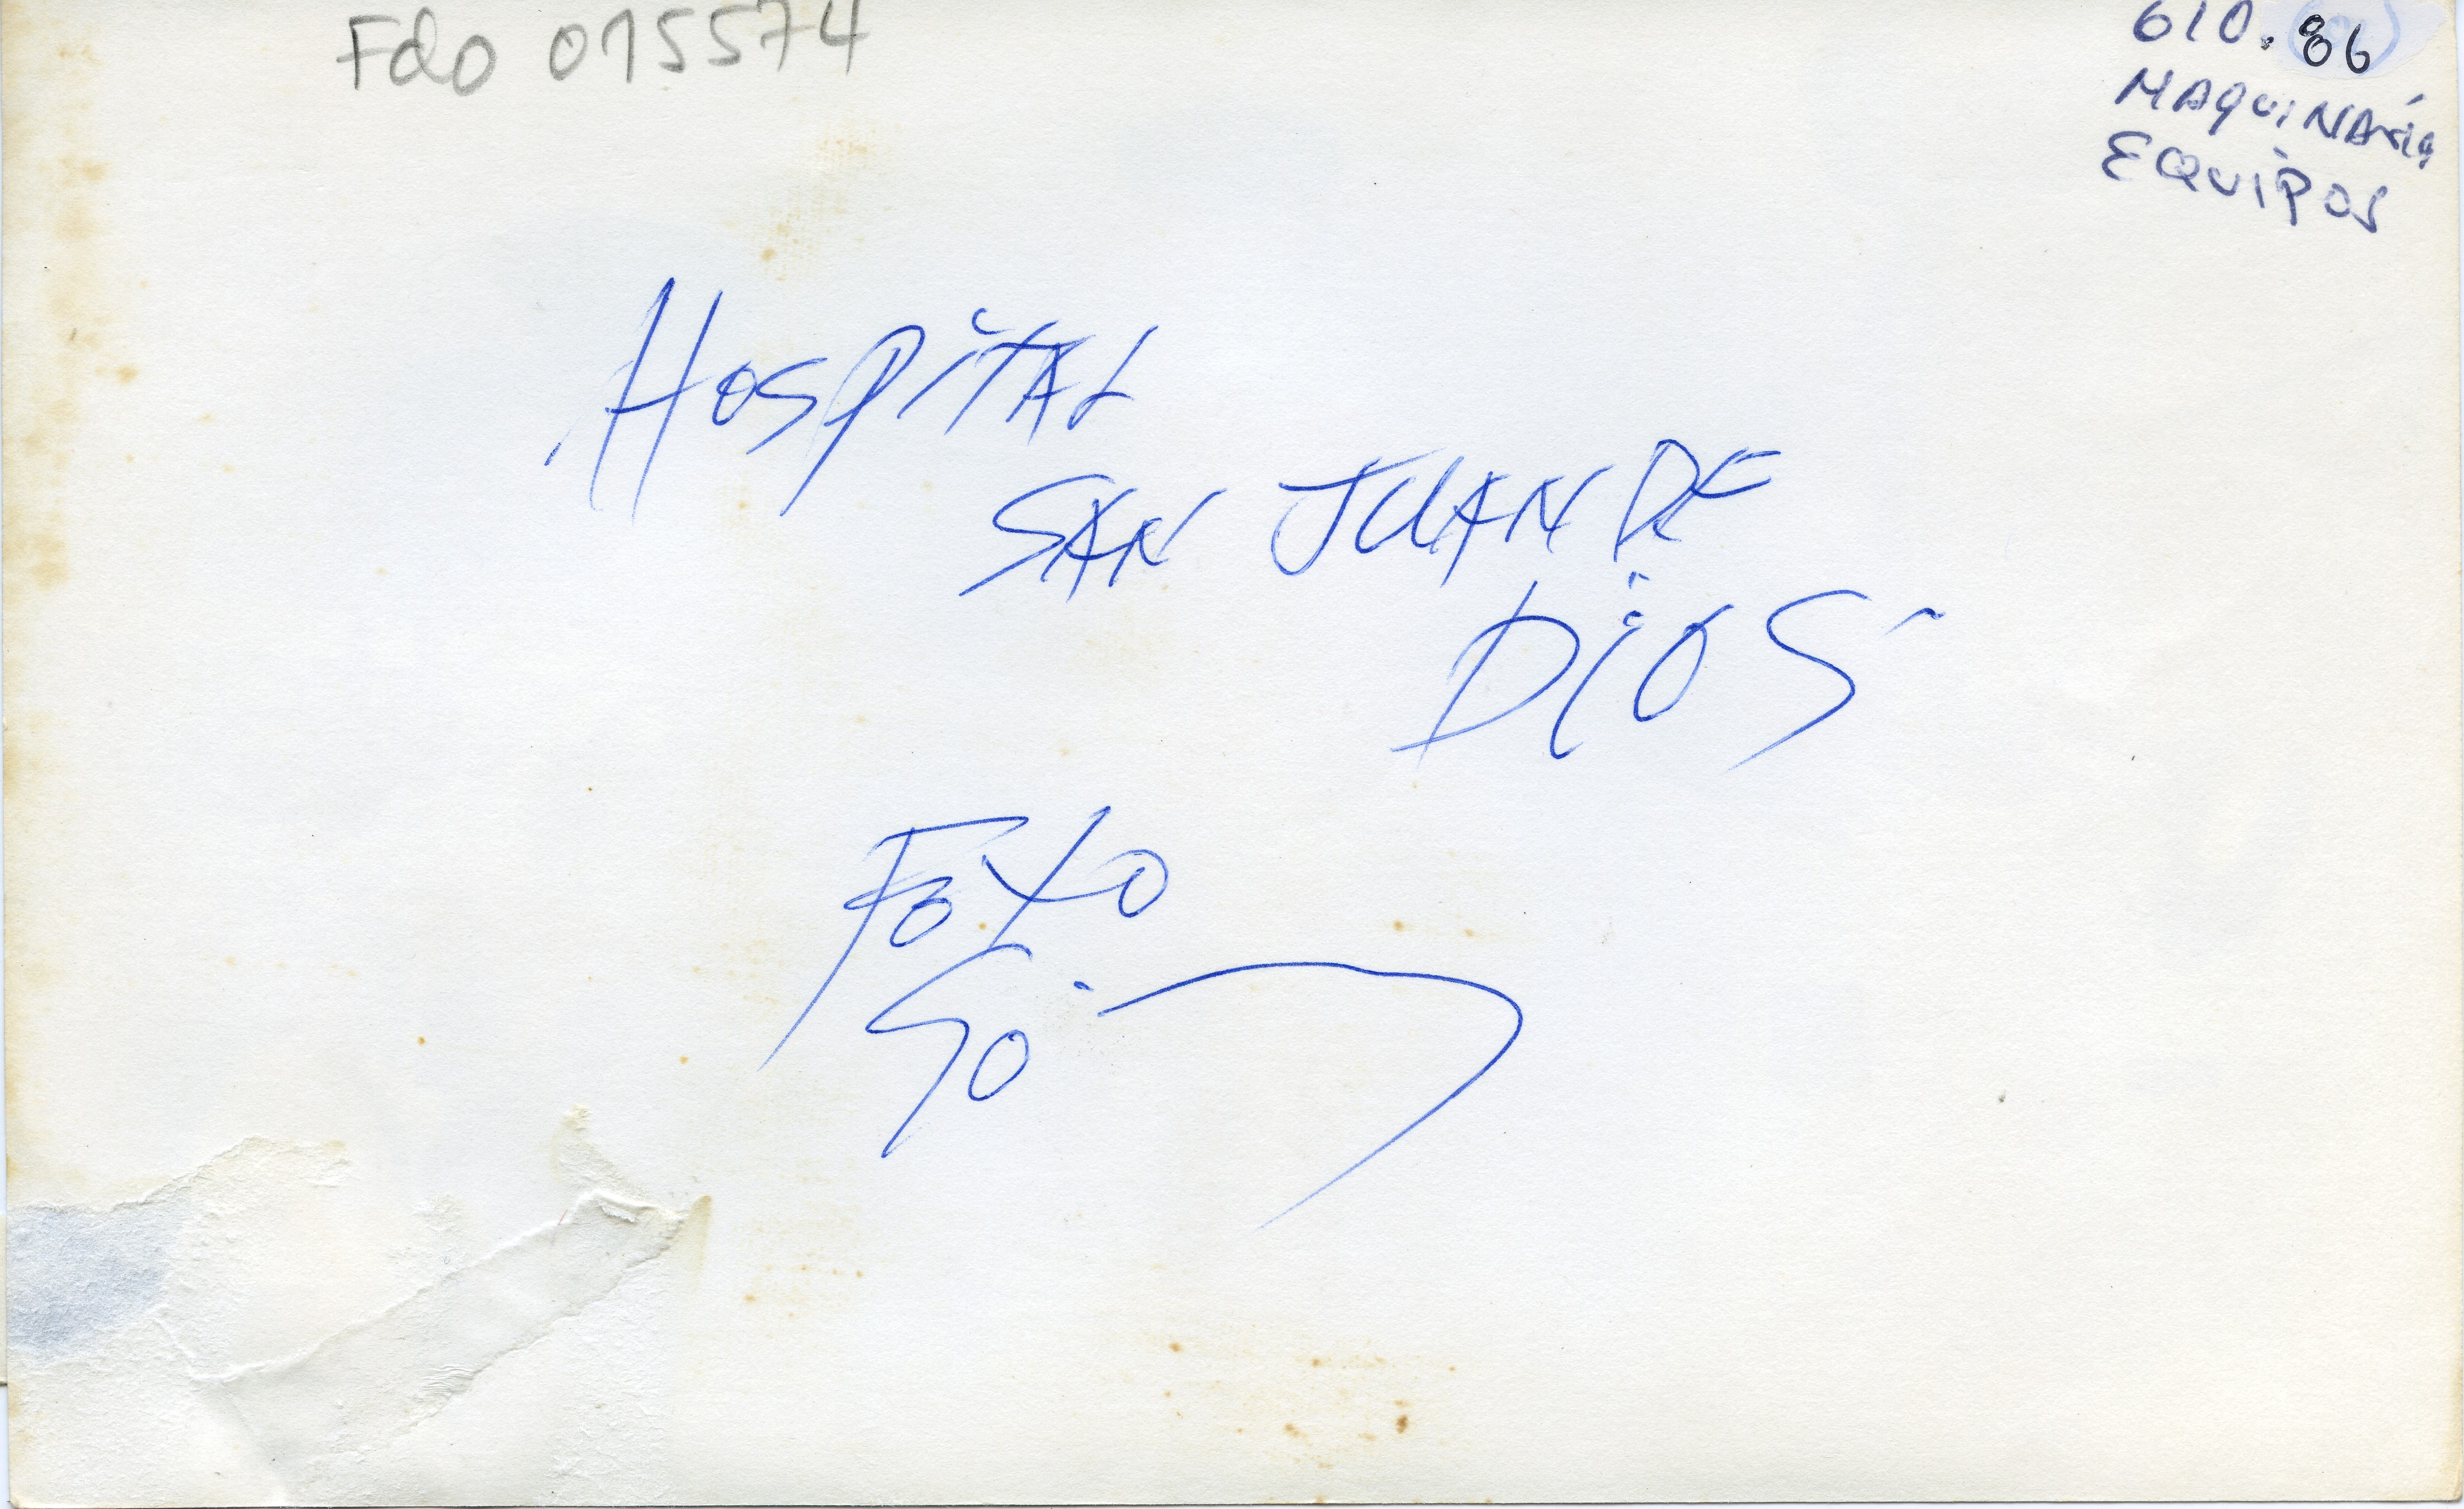 Fdo 015574
610.86
MAQUINARIA
EQUIPOS
HOSPITAL
SAN JUAN DE
DIOS
FOTO